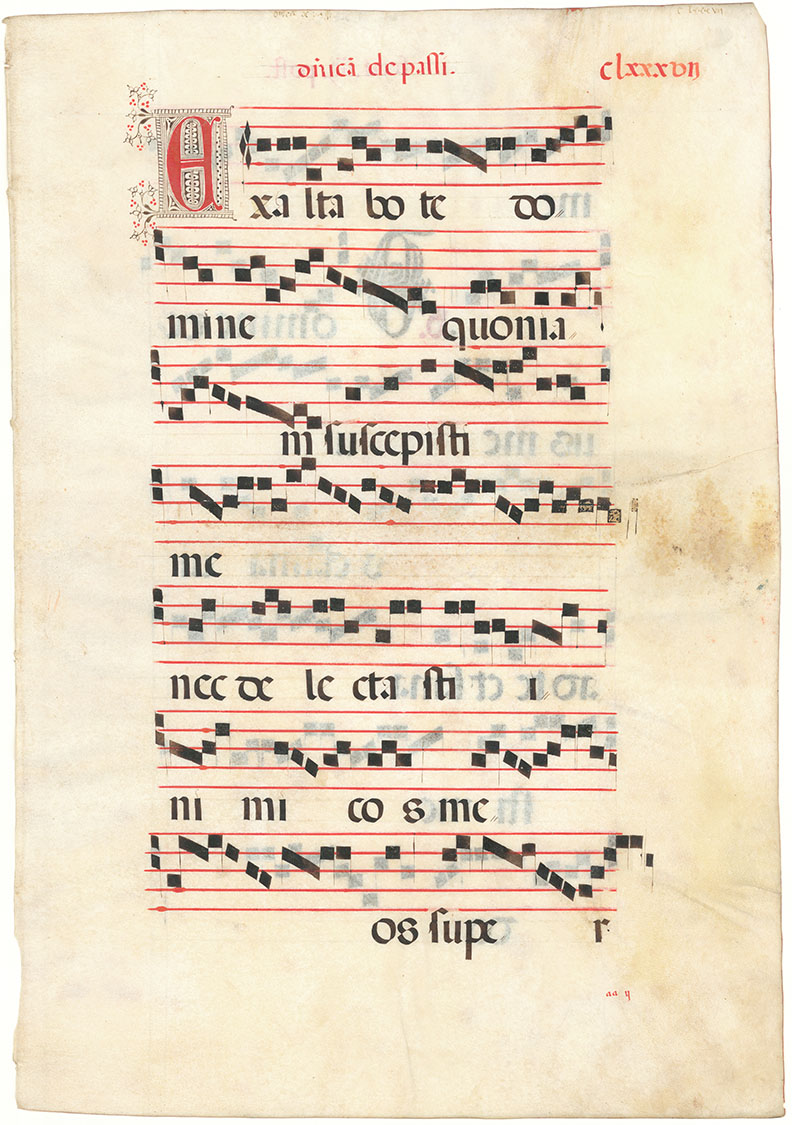 dn̄icā de passi. clxxxvij
Exa lta bo te do
mine quonia
m suscepisti
me
nec de le cta sti i
ni mi co s me
os supe r
aa ij